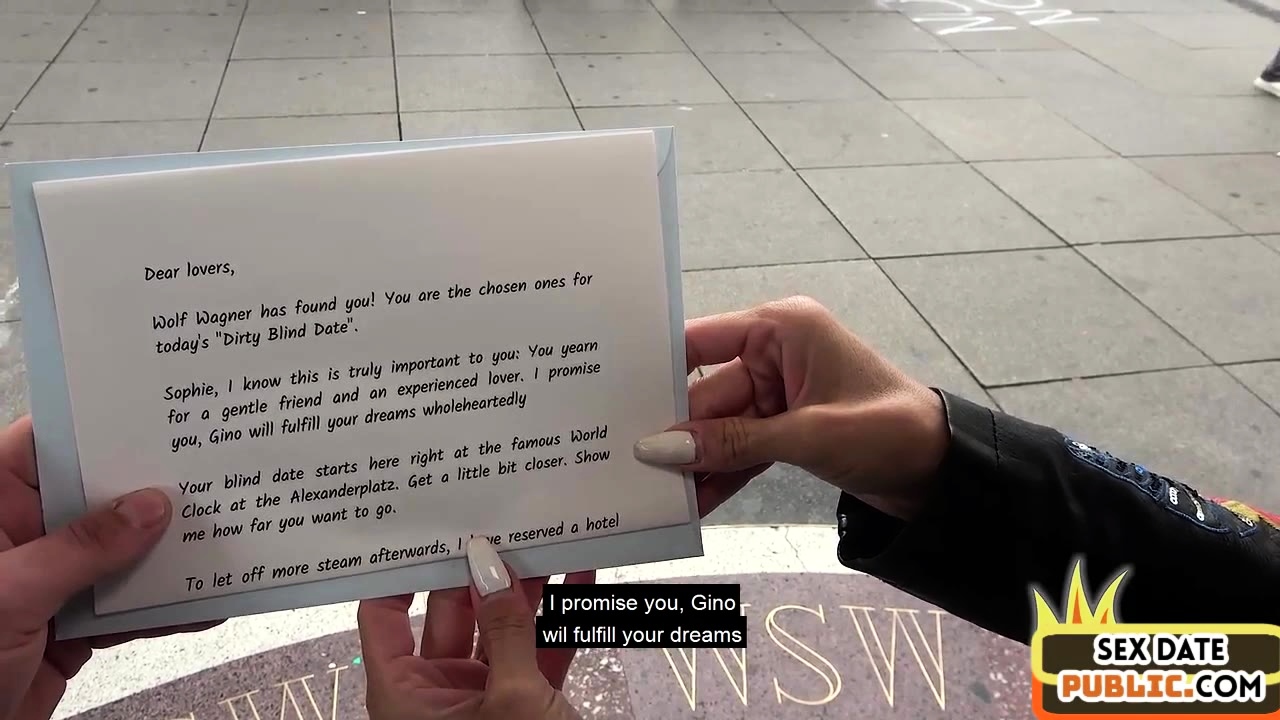 Dear lovers,
Wolf Wagner has found you! You are the chosen ones for
today's "Dirty Blind Date".
Sophie, I know this is truly important to you: You yearn
for a gentle friend and an experienced lover. I promise
you, Gino will fulfill your dreams wholeheartedly
Your blind date starts here right at the famous World
Clock at the Alexanderplatz. Get a little bit closer. Show
me how far you want to go.
To let off more steam afterwards, I have reserved a hotel
I promise you, Gino
wil fulfill your dreams
WSW
SEX DATE
PUBLIC.COM